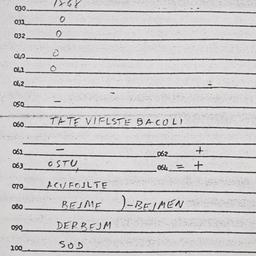 030. 1268
031. 0
032. 0
040. 0
041. 0
042. -
050. -
060. TATE VIFLSTE BACOLI
061. - 062. +
063. OSTU, 064. = +
070.
080. BEJME )-BEJMEN
090. DERBEJM
100. SOD